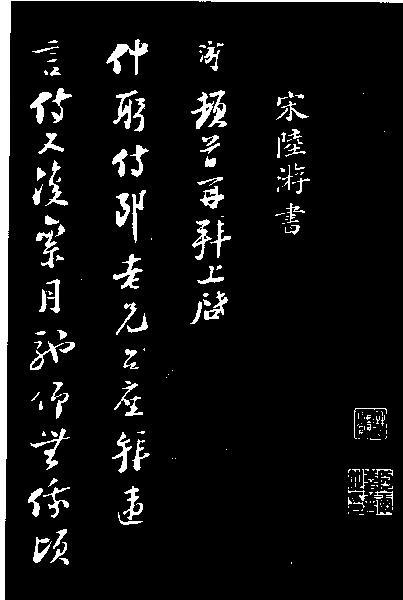 宋陸游書
游頓首再拜上啓
仲躬侍郎老兄台座拜違
言侍又浹月馳仰無係頃